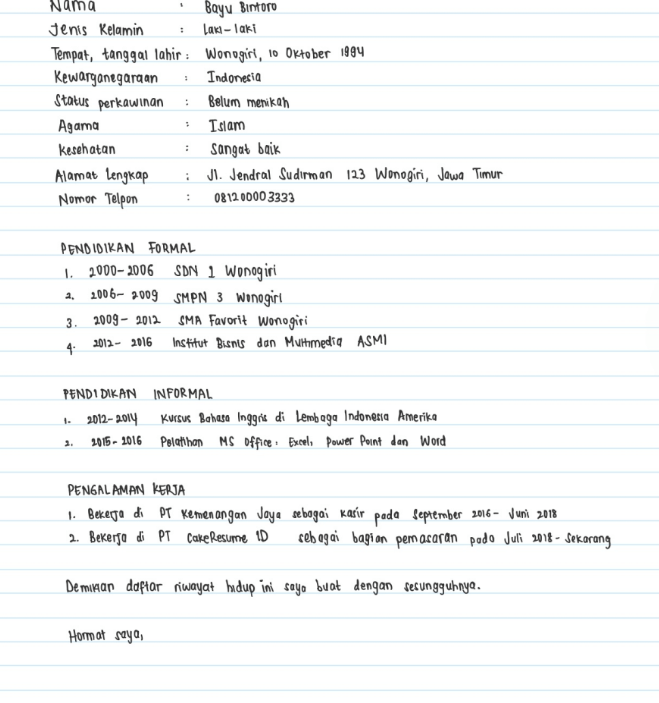 Nama : Bayu Bintoro
Jenis Kelamin : Laki-laki
Tempat, tanggal lahir : Wonogiri, 10 Oktober 1994
Kewarganegaraan : Indonesia
Status perkawinan : Belum menikah
Agama : Islam
Kesehatan : Sangat baik
Alamat Lengkap : Jl. Jendral Sudirman 123 Wonogiri, Jawa Timur
Nomor Telpon : 081200003333
PENDIDIKAN FORMAL
1. 2000-2006 SDN 1 Wonogiri
2. 2006-2009 SMPN 3 Wonogiri
3. 2009-2012 SMA Favorit Wonogiri
4. 2012-2016 Institut Bisnis dan Multimedia ASMI
PENDIDIKAN INFORMAL
1. 2012-2014 Kursus Bahasa Inggris di Lembaga Indonesia Amerika
2. 2015-2016 Pelatihan MS Office: Excel, Power Point dan Word
PENGALAMAN KERJA
1. Bekerja di PT Kemenangan Jaya sebagai kasir pada September 2016- Juni 2018
2. Bekerja di PT CakeResume ID sebagai bagian pemasaran pada Juli 2018-Sekarang
Demikian daftar riwayat hidup ini saya buat dengan sesungguhnya.
Hormat saya,